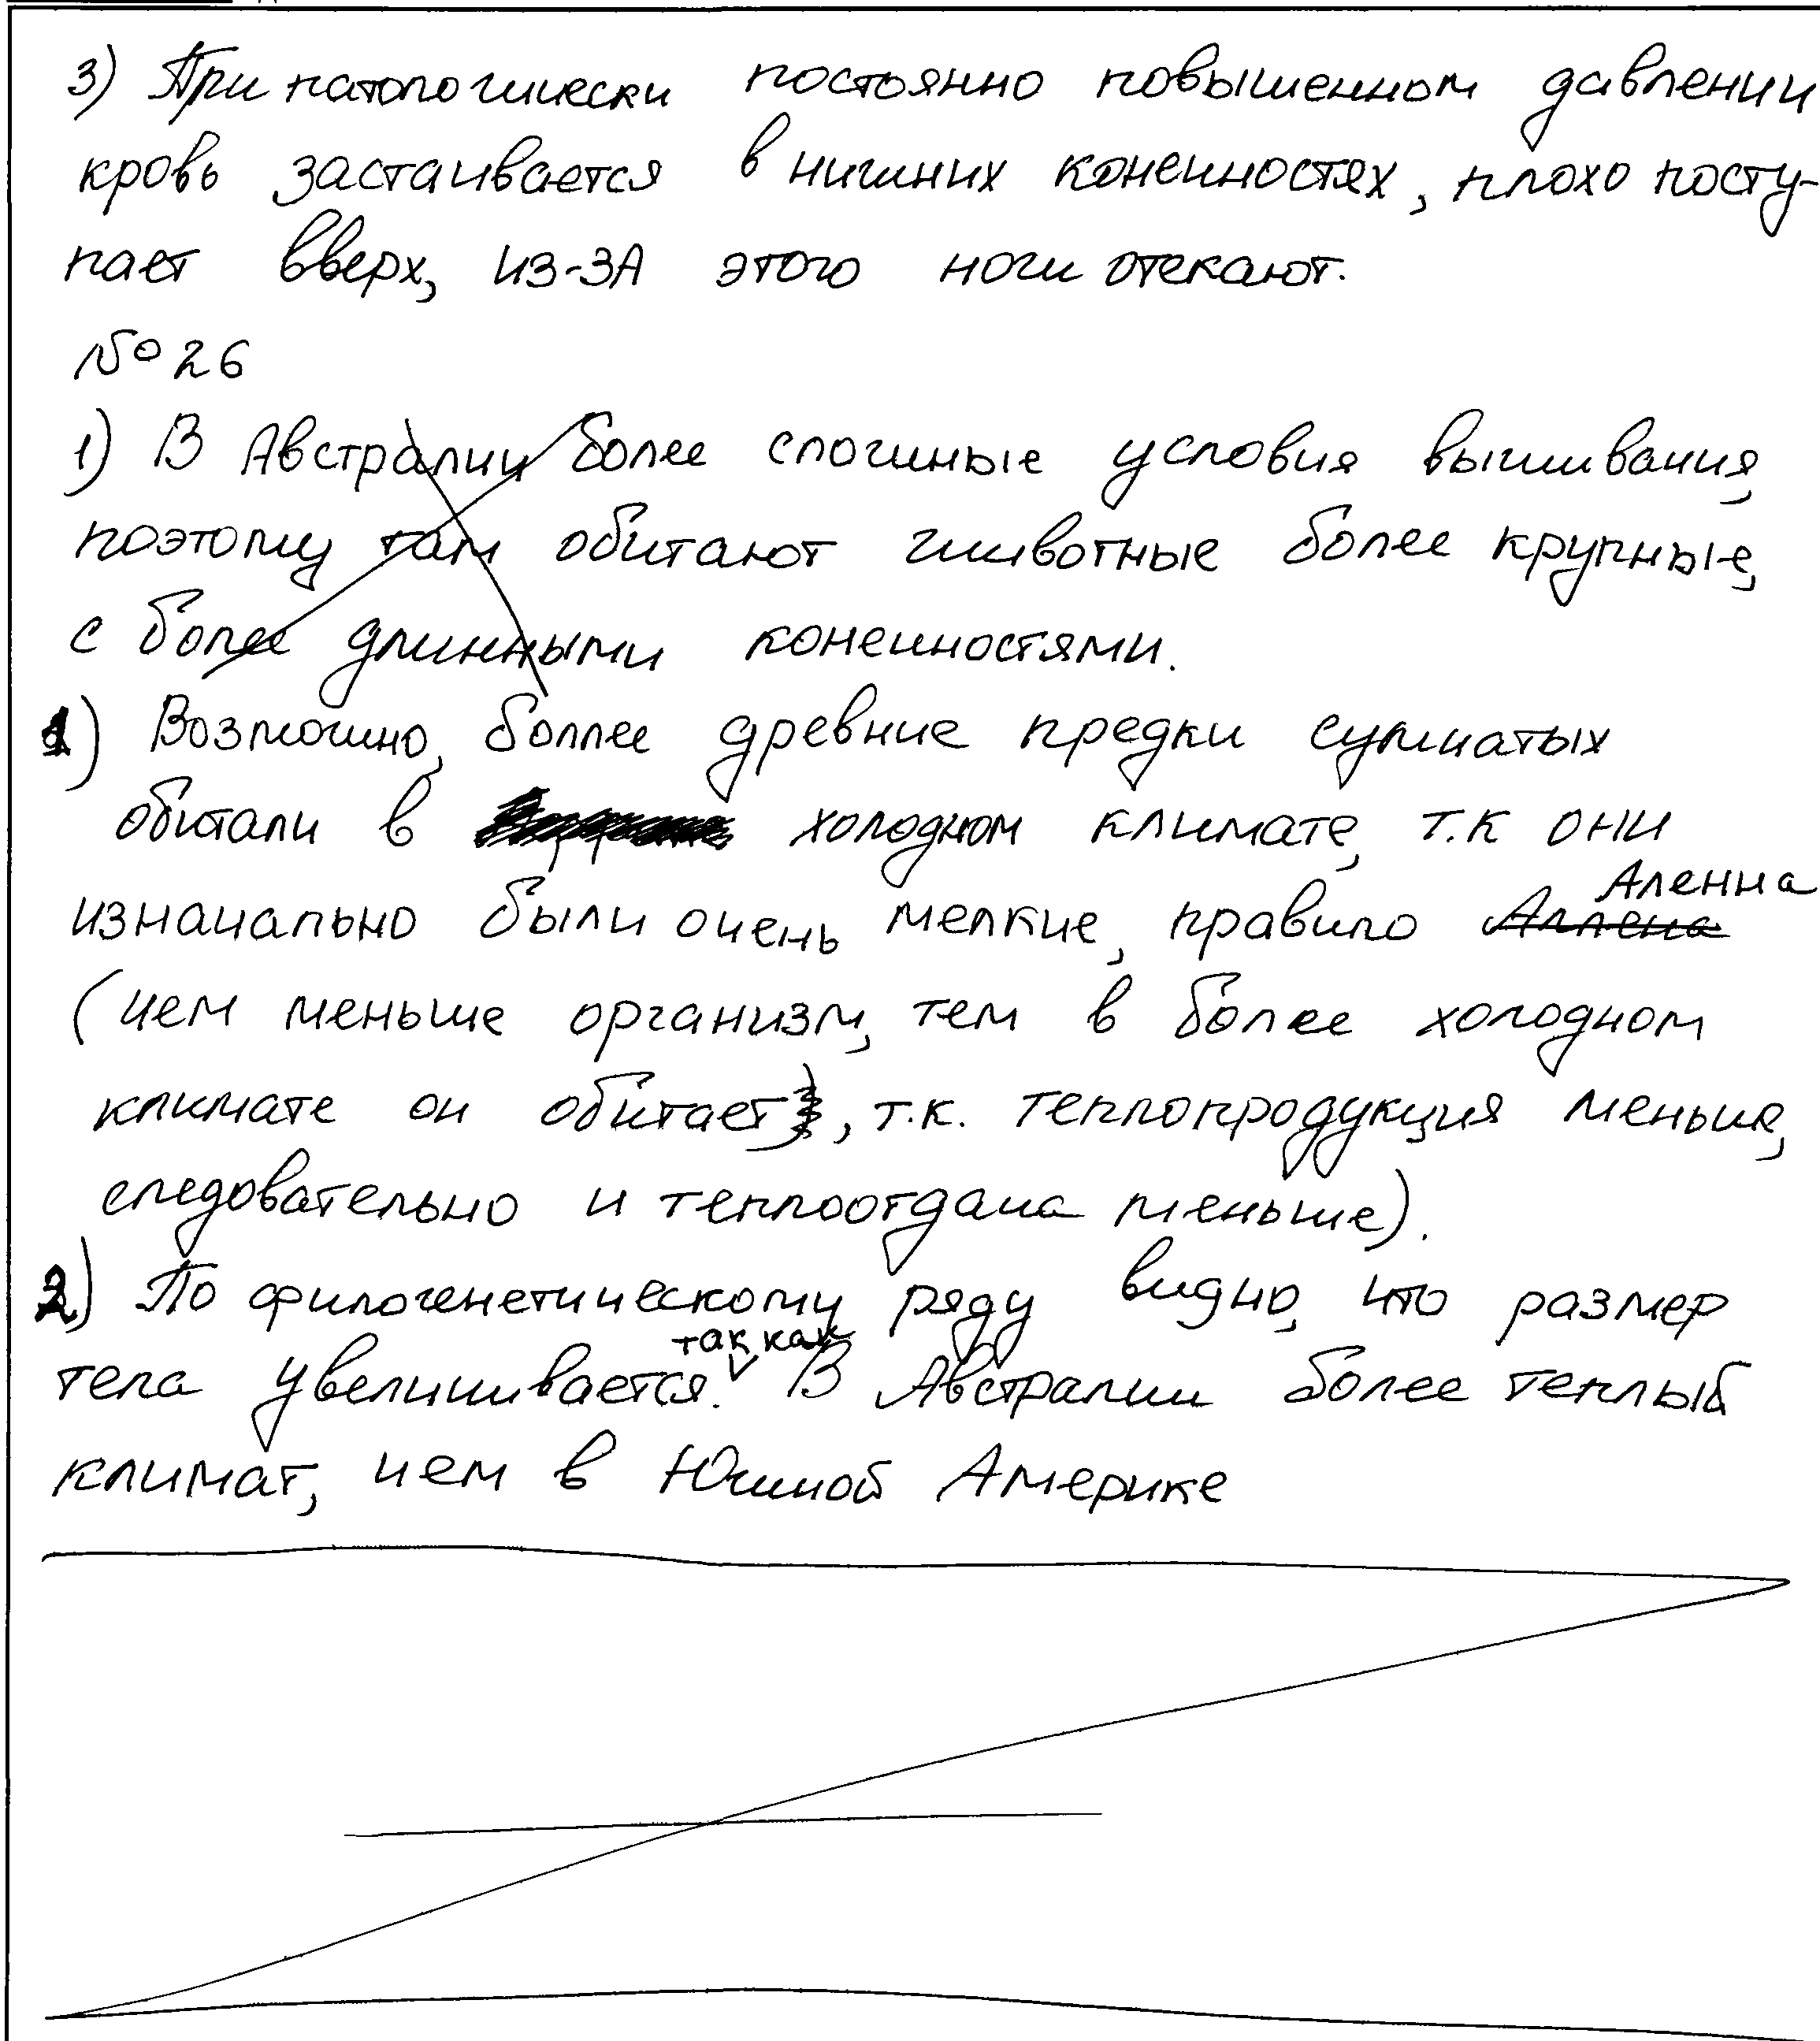 3) При патологически постоянно повышенном давлении
кровь застаивается в нижних конечностях, плохо посту-
пает вверх, из-за этого ноги отекают.
№ 26
1) В Австралии более сложные условия выживания,
поэтому там обитают животные более крупные,
с более длинными конечностями.
1) Возможно, боллее древние предки сумчатых
обитали в холодном климате, т.к они
изначально были очень мелкие, правило Аллена Аленна
(чем меньше организм, тем в более холодном
климате он обитает, т.к. теплопродукция меньше,
следовательно и теплоотдача меньше).
2) По филогенетическому ряду видно, что размер
тела увеличивается. так как В Австралии более теплый
климат, чем в Южной Америке